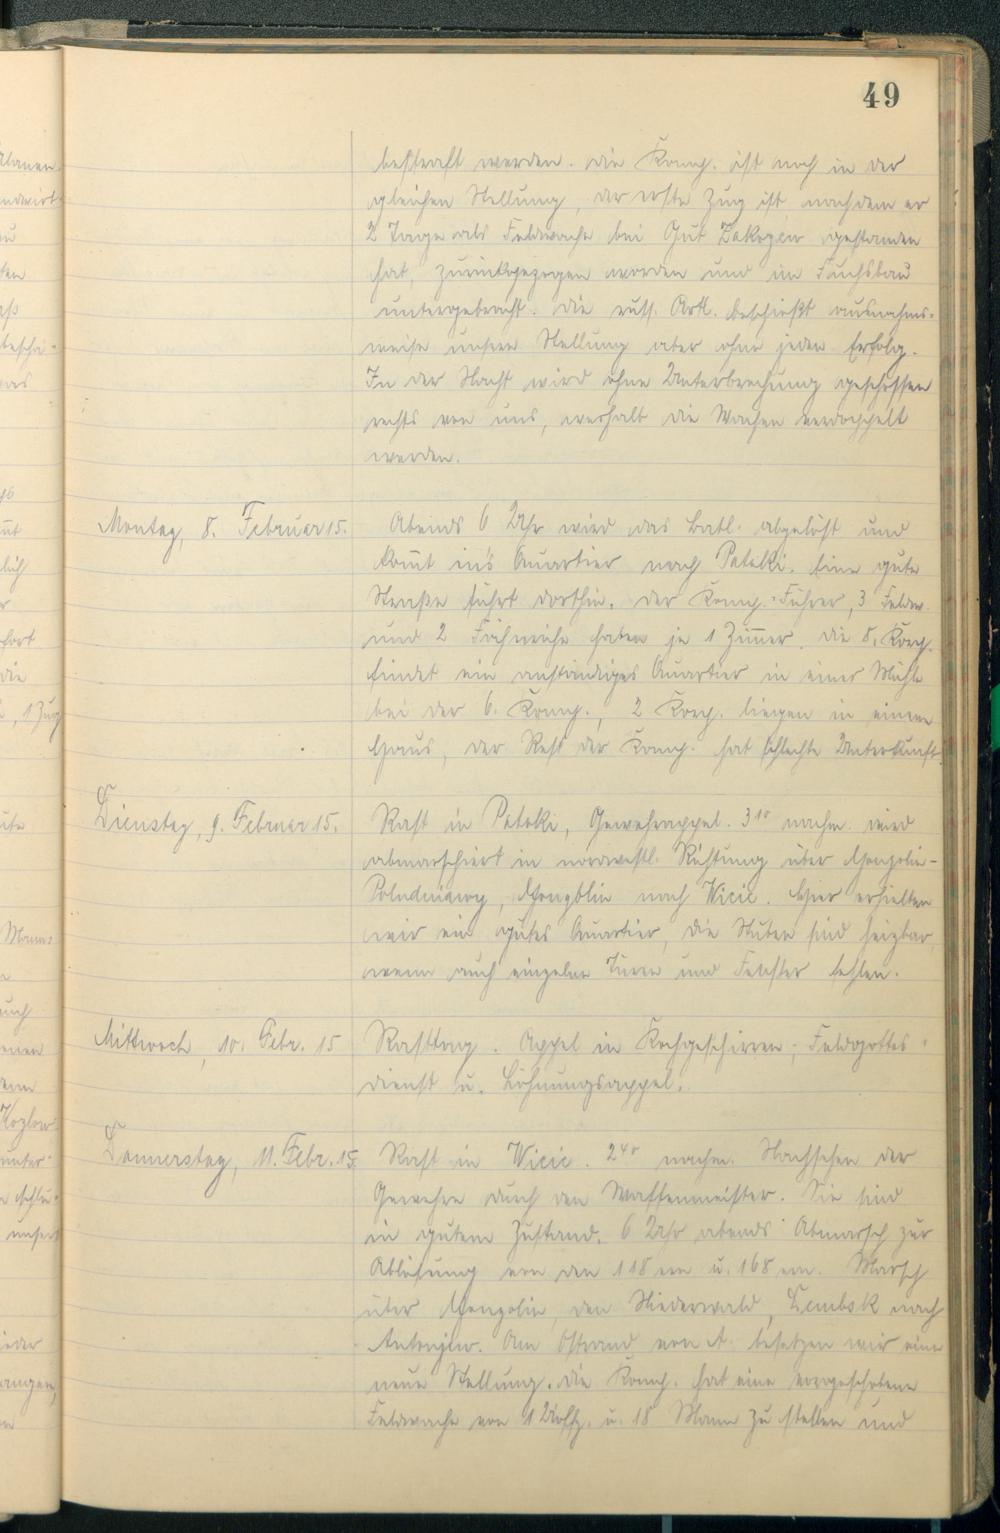 49
bestraft werden. Die Komp. ist noch in der
gleichen Stellung, der erste Zug ist nachdem er
2 Tage als Feldwache bei Gut gestanden
hat, zurückgezogen worden und im Fuchsbau
untergebracht. Die russ. Artl. beschießt ausnahms-
weise unsere Stellung aber ohne jeden Erfolg.
In der Nacht wird ohne Unterbrechung geschossen
rechts von uns, weshalb die Wachen verdoppelt
werden.
Montag, 8. Februar 15.
Abends 6 Uhr wird das Batl. abgelöst und
kom̄t in's Quartier nach Potoki. Eine gute
Straße führt dorthin. Der Komp.-Führer, 3 Feldw.
und 2 Fähnriche haben je 1 Zim̄er. Die 8. Korp.
findet ein anständiges Quartier in einer Mühle
bei der 6. Komp., 2 Korp. liegen in einem
Haus, der Rest der Komp. hat schlechte Unterkunft.
Dienstag, 9. Februar 15.
Rast in Potoki, Gewehrappel. 3¹⁰ nachm. wird
abmarschiert in nordwestl. Richtung über
nach Wicie. Hier erhielten
wir ein gutes Quartier, die Stuben sind heizbar,
wenn auch einzelne Türen und Fenster fehlen.
Mittwoch, 10. Febr. 15
Rasttag. Appel in Kochgeschirren; Feldgottes-
dienst u. Löhnungsappel.
Donnerstag, 11. Febr. 15.
Rast in Wicie. 2⁴⁰ nachm. Nachsehen der
Gewehre durch den Waffenmeister. Sie sind
in gutem Zustand. 6 Uhr abends Abmarsch zur
Ablösung von den 118 ern u. 168 ern. Marsch
über den Niederwald, nach
Antonjew. Am Ostrand von A. besetzen wir eine
neue Stellung. Die Komp. hat eine vorgeschobene
Feldwache von 1 Utoffz. u. 18 Mann zu stellen und